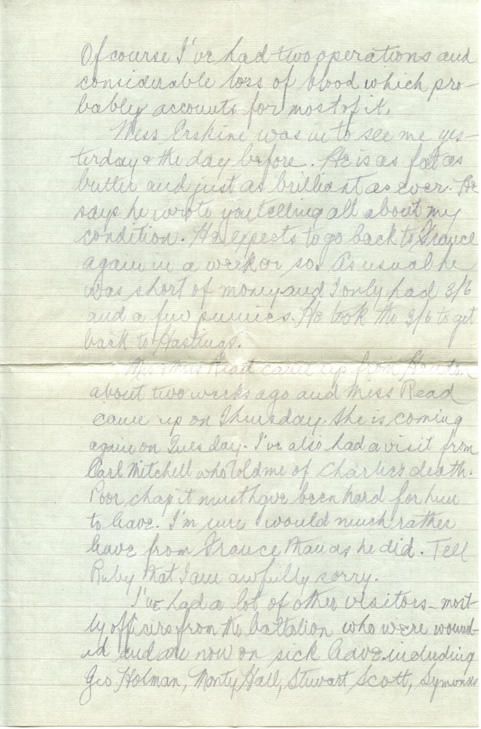 Of course I've had two operations and
considerable loss of blood which pro-
bably accounts for most of it.
Miss Erskine was in to see me yes-
terday & the day before. He is as fat as
butter and just as brilliant as ever. He
says he wrote you telling all about my
condition. He expects to go back to France
again in a week or so. As usual he
was short of money and I only had 3/6
and a few pennies. He took the 3/6 to get
back to Hastings.
Read came up from
about two weeks ago and Miss Read
came up on Thursday. She is coming
again on Tuesday. I've also had a visit from
Carl Mitchell who told me of Charlie's death.
Poor chap it must have been hard for him
to leave. I'm sure I would much rather
leave from France than as he did. Tell
Ruby that I am awfully sorry.
I've had a lot of other visitors - most-
ly officers from the battalion who were wound-
ed and are now on sick leave including
Geo Holman, Monty Hall, Stewart Scott, Symonds